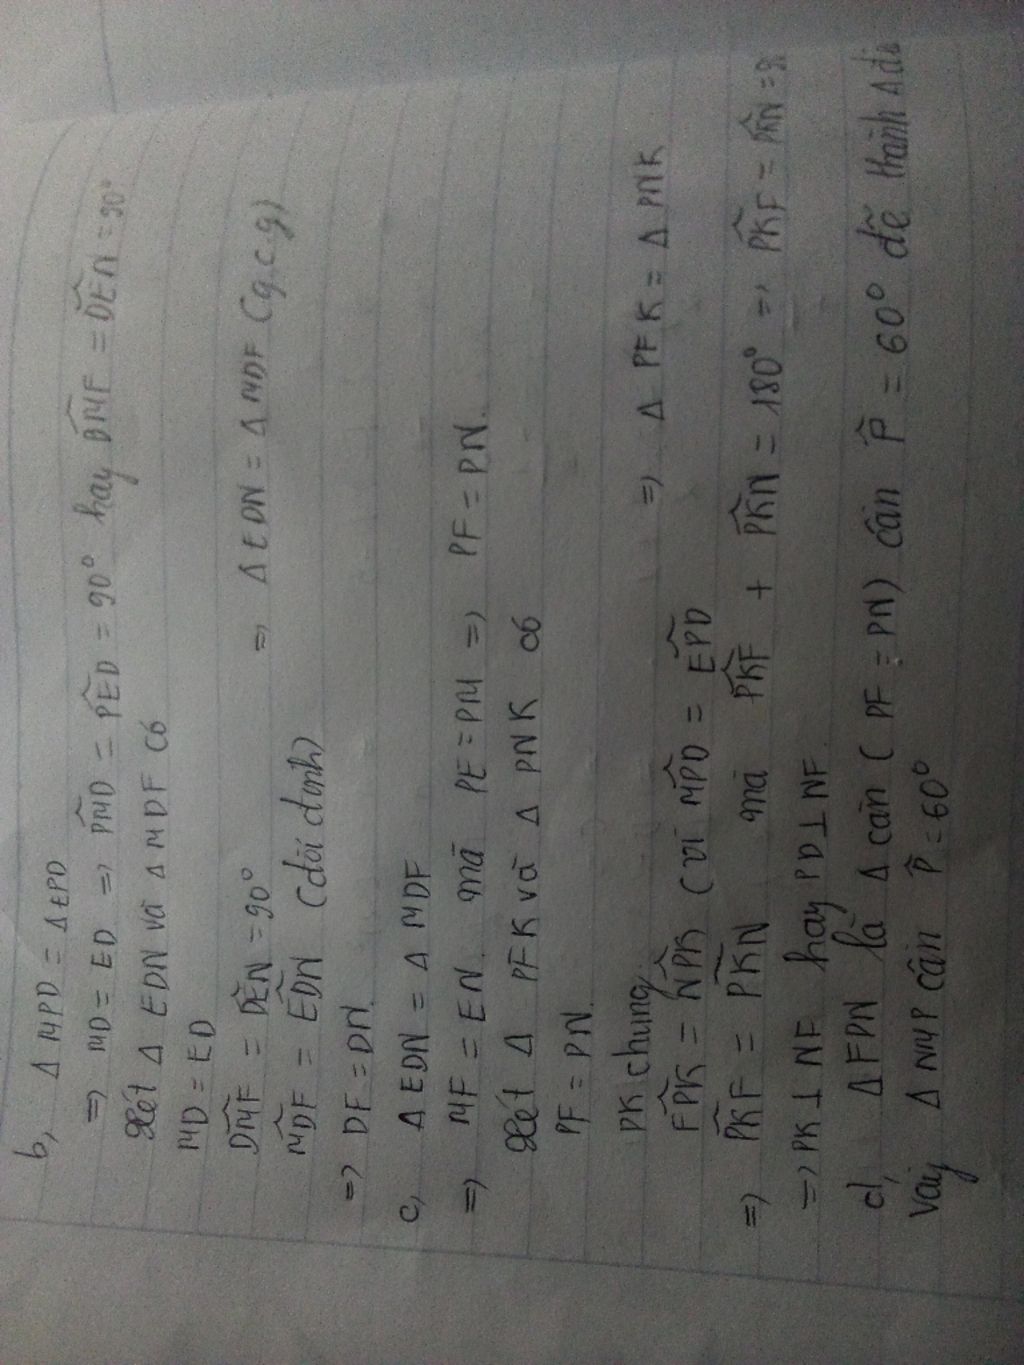 b, Δ MPD = Δ EPD
=> MD = ED => PM̂D = PÊD = 90° hay DM̂F = DÊN = 90°
Xét Δ EDN và Δ MDF có
MD = ED
DM̂F = DÊN = 90° => Δ EDN = Δ MDF (g.c.g)
MD̂F = ED̂N (đối đỉnh)
=> DF = DN.
c, Δ EDN = Δ MDF
=> MF = EN. mà PE = PM => PF = PN.
Xét Δ PFK và Δ PNK có
PF = PN.
PK chung. => Δ PFK = Δ PNK
FP̂K = NP̂K (vì MP̂D = EP̂D
=> PK̂F = PK̂N mà PK̂F + PK̂N = 180° => PK̂F = PK̂N = 9
=> PK ⊥ NF hay PD ⊥ NF.
d, Δ FPN là Δ cân ( PF = PN) cần P̂ = 60° để thành Δ đề
Vậy Δ NMP cần P̂ = 60°